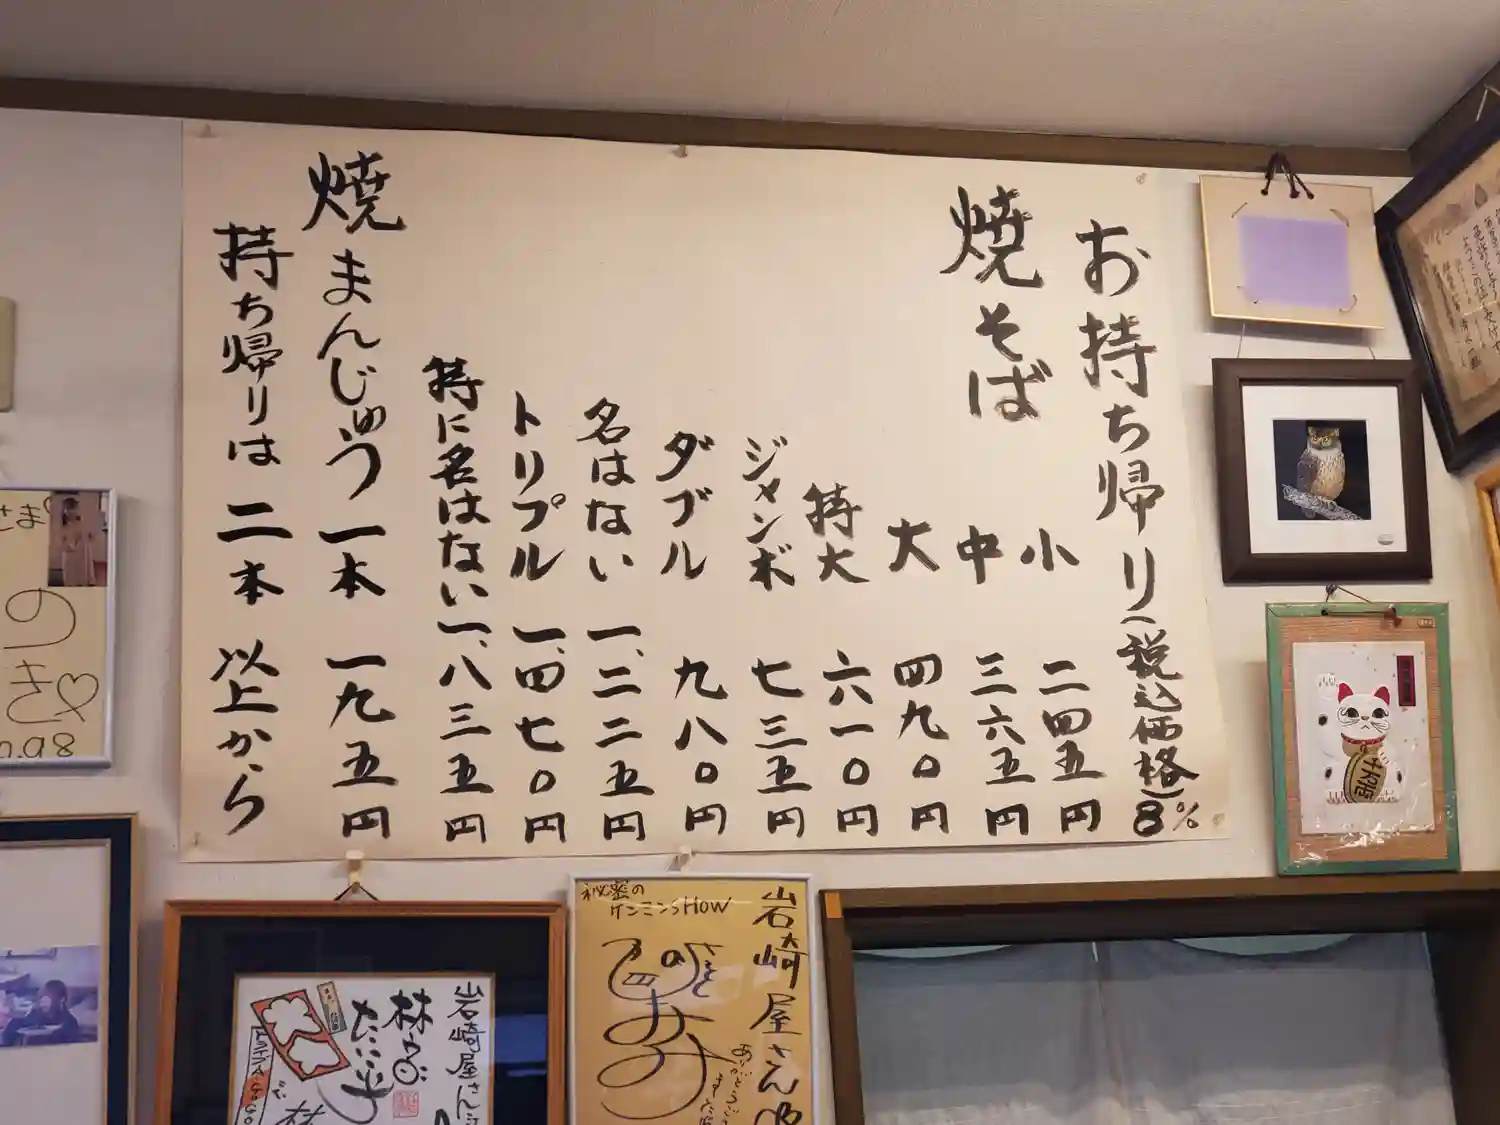 お持ち帰り(税込価格)8%
焼そば
小 二四五円
中 三六五円
大 四九〇円
特大 六一〇円
ジャンボ 七三五円
ダブル 九八〇円
名はない 一、二二五円
トリプル 一、四七〇円
特に名はない 一、八三五円
焼まんじゅう 一本 一九五円
持ち帰りは 二本 以上から
岩崎屋さん
秘密の
ケンミンSHOW
岩崎屋さん
林家
たい平